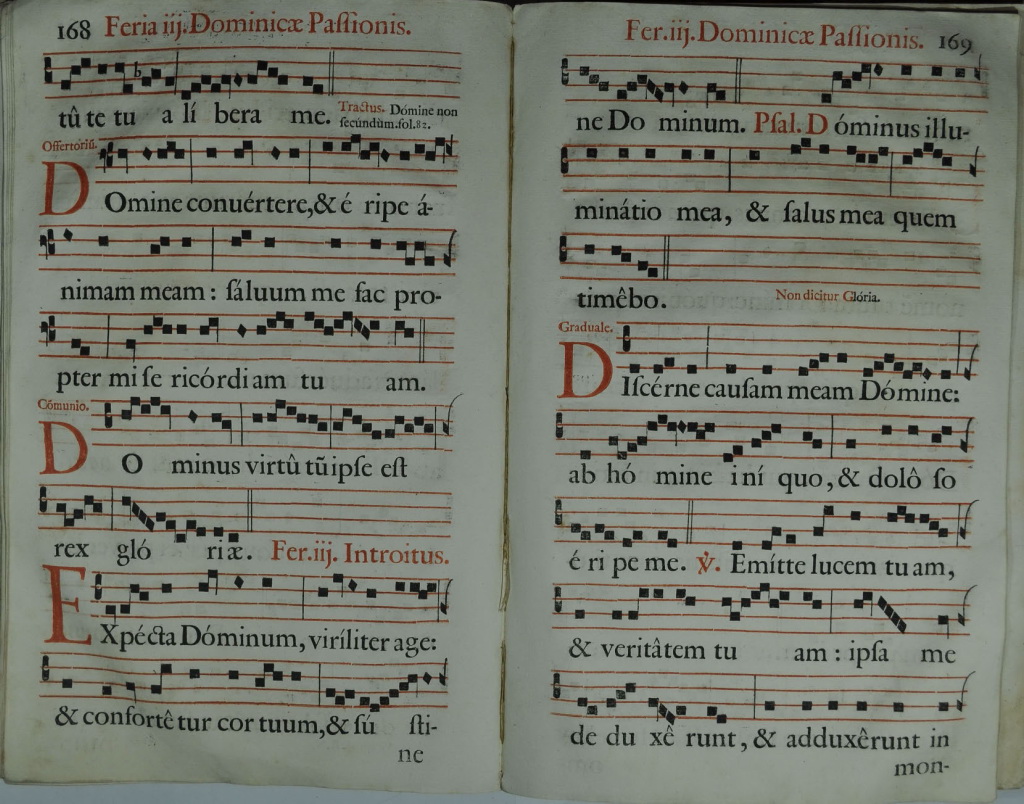 168 Feria iij. Dominicæ Paſſionis.
tû te tu a lí bera me. Tractus. Dómine non
ſecúndùm. fol. 82.
Offertoriũ.
DOmine conuértere, & é ripe á-
nimam meam : ſáluum me fac pro-
pter mi ſe ricórdi am tu am.
Cómunio.
DO minus virtû tũ ipſe eſt
rex gló ri æ. Fer. iij. Introitus.
EXpécta Dóminum, viríliter age:
& confortê tur cor tuum, & ſú ſti-
ne
Fer. iij. Dominicæ Paſſionis. 169
ne Do minum. Pſal. D óminus illu-
minátio mea, & ſalus mea quem
timêbo. Non dicitur Glória.
Graduale.
DIſcérne cauſam meam Dómine:
ab hó mine iní quo, & dolô ſo
é ri pe me. ℣. Emítte lucem tu am,
& veritâtem tu am : ipſa me
de du xê runt, & adduxêrunt in
mon-